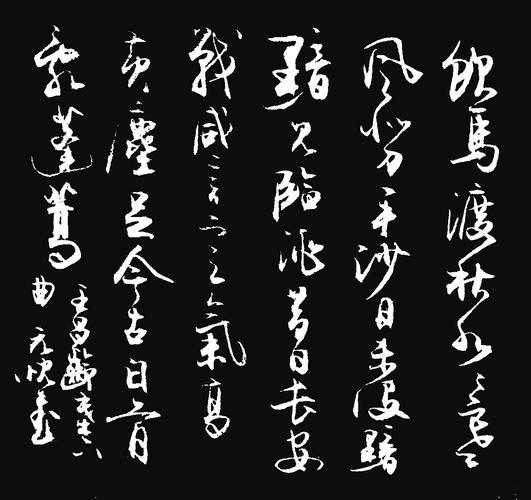 飲馬渡秋水水寒
風似刀平沙日未没黯
黯见臨洮昔日長安
戰咸言意氣高
黄塵足今古白骨
亂蓬蒿
王昌齡塞下
曲 元